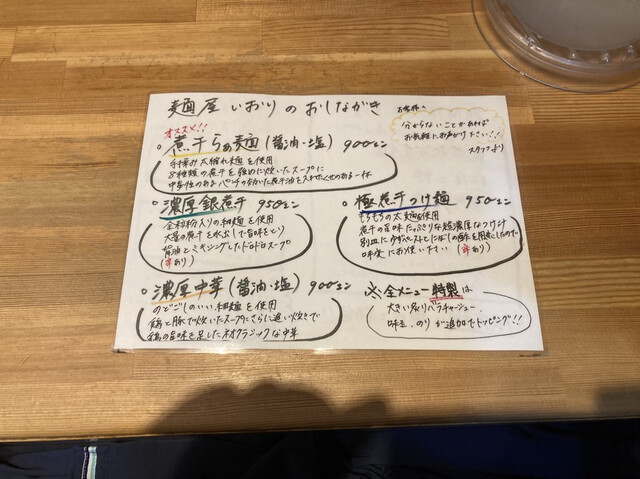 麺屋 いおりのおしながき
お客様へ
分からないことがあれば
お気軽にお声がけ下さい!!
スタッフより
オススメ!!
煮干らぁ麺(醤油・塩) 900エン
手揉み太縮れ麺を使用
8種類の煮干を強めに炊いたスープに
中毒性のあるパンチの効いた煮干油を入れたくせのある一杯
濃厚銀煮干 950エン
全粒粉入りの細麺を使用
大量の煮干を水出しで旨味をとり
醤油とミキシングしたドロドロスープ
(辛あり)
極煮干つけ麺 950エン
もちもちの太麺を使用
煮干の旨味たっぷりな超濃厚なつけ汁
別皿にゆずペーストとだしの酢を用意したので
味変にお使い下さい (辛あり)
濃厚中華(醤油・塩) 900エン
のどごしのいい細麺を使用
鶏と豚で炊いたスープにさらに追い炊きで
鶏の旨味を足したネオクラシックな中華
※全メニュー特製は
大きい炙りバラチャーシュー、
味玉、のりが追加でトッピング!!